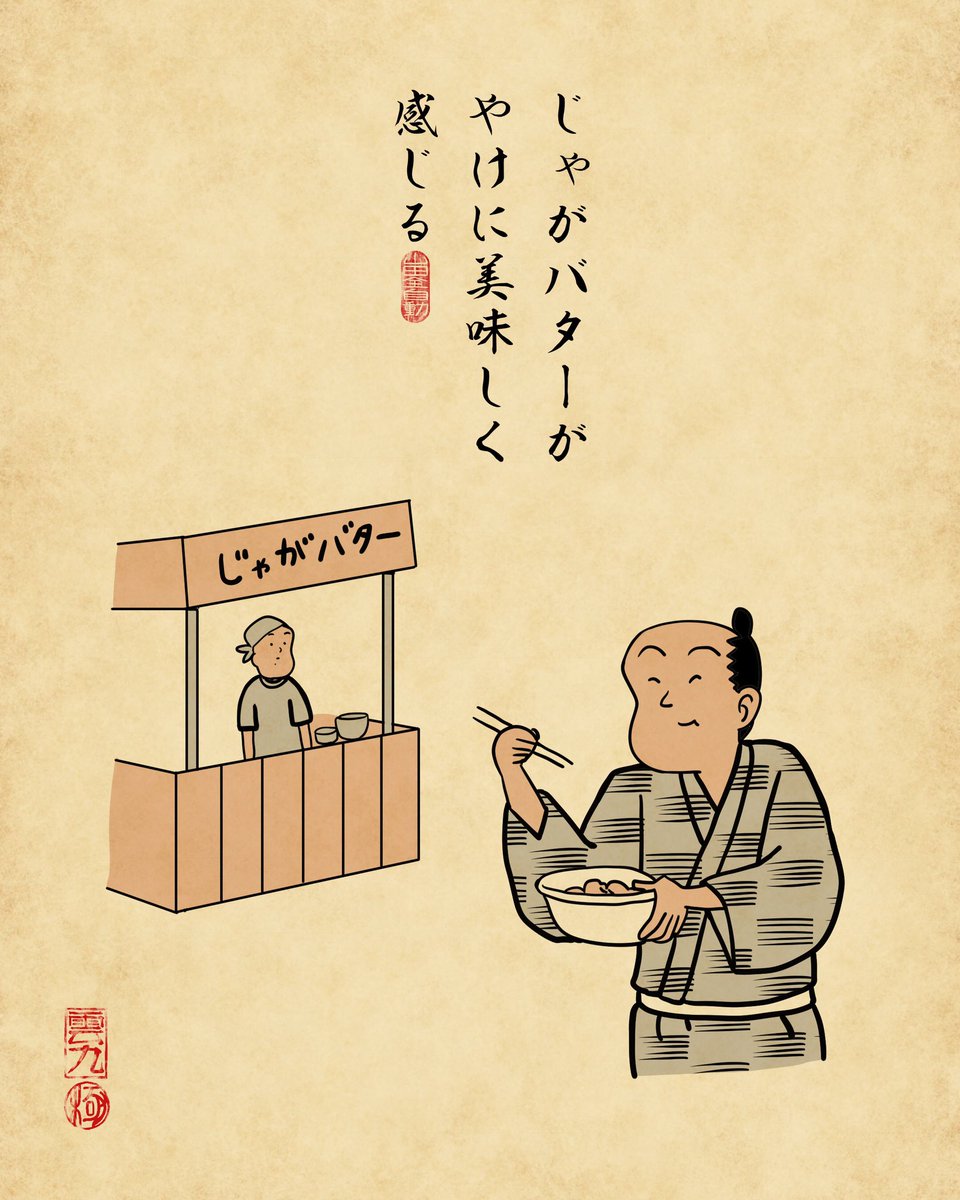 じゃがバターが
やけに美味しく
感じる
じゃがバター